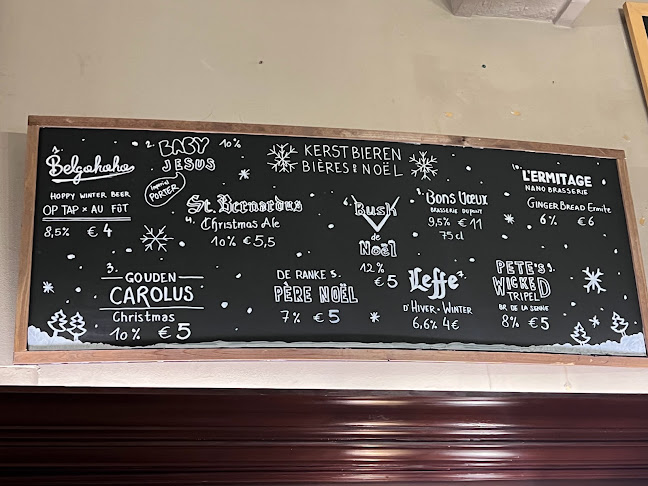 KERSTBIEREN
BIÈRES DE NOËL
1.
Belgohoho
HOPPY WINTER BEER
OP TAP × AU FÛT
8,5% €4
2. BABY 10%
JESUS
Imperial
PORTER
3.
GOUDEN
CAROLUS
Christmas
10% €5
St. Bernardus
4. Christmas Ale
10% €5,5
DE RANKE 5.
PÈRE NOËL
7% €5
6.
Bush
de
Noël
12%
€5
Leffe 7.
D'HIVER - WINTER
6,6% 4€
8.
Bons Vœux
BRASSERIE DUPONT
9,5% €11
75cl
PETE'S 9.
WICKED
TRIPEL
BR DE LA SENNE
8% €5
10.
L'ERMITAGE
NANO BRASSERIE
GINGERBREAD Ermite
6% €6